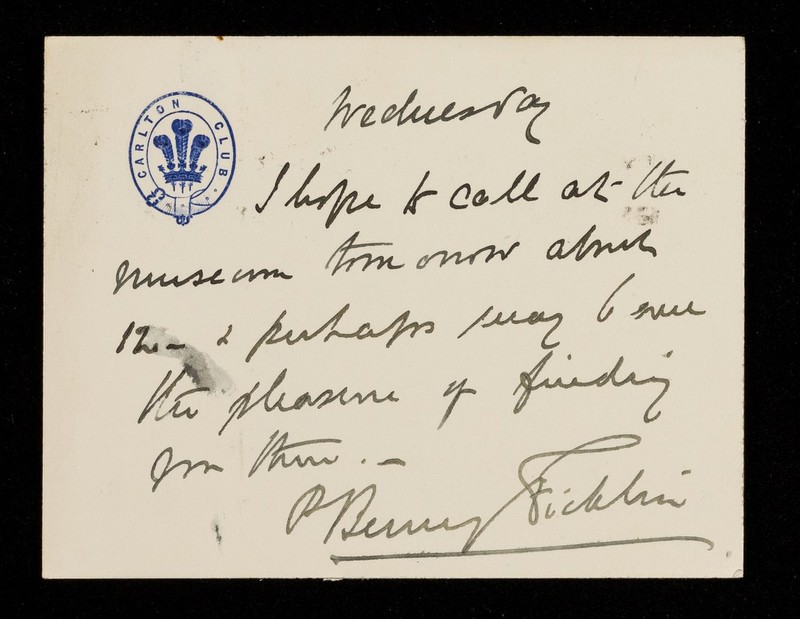 CARLTON CLUB.
Wednesday
I hope to call at the
museum tomorrow about
12 – & perhaps may have
the pleasure of finding
you there. –
P Berney Ficklin